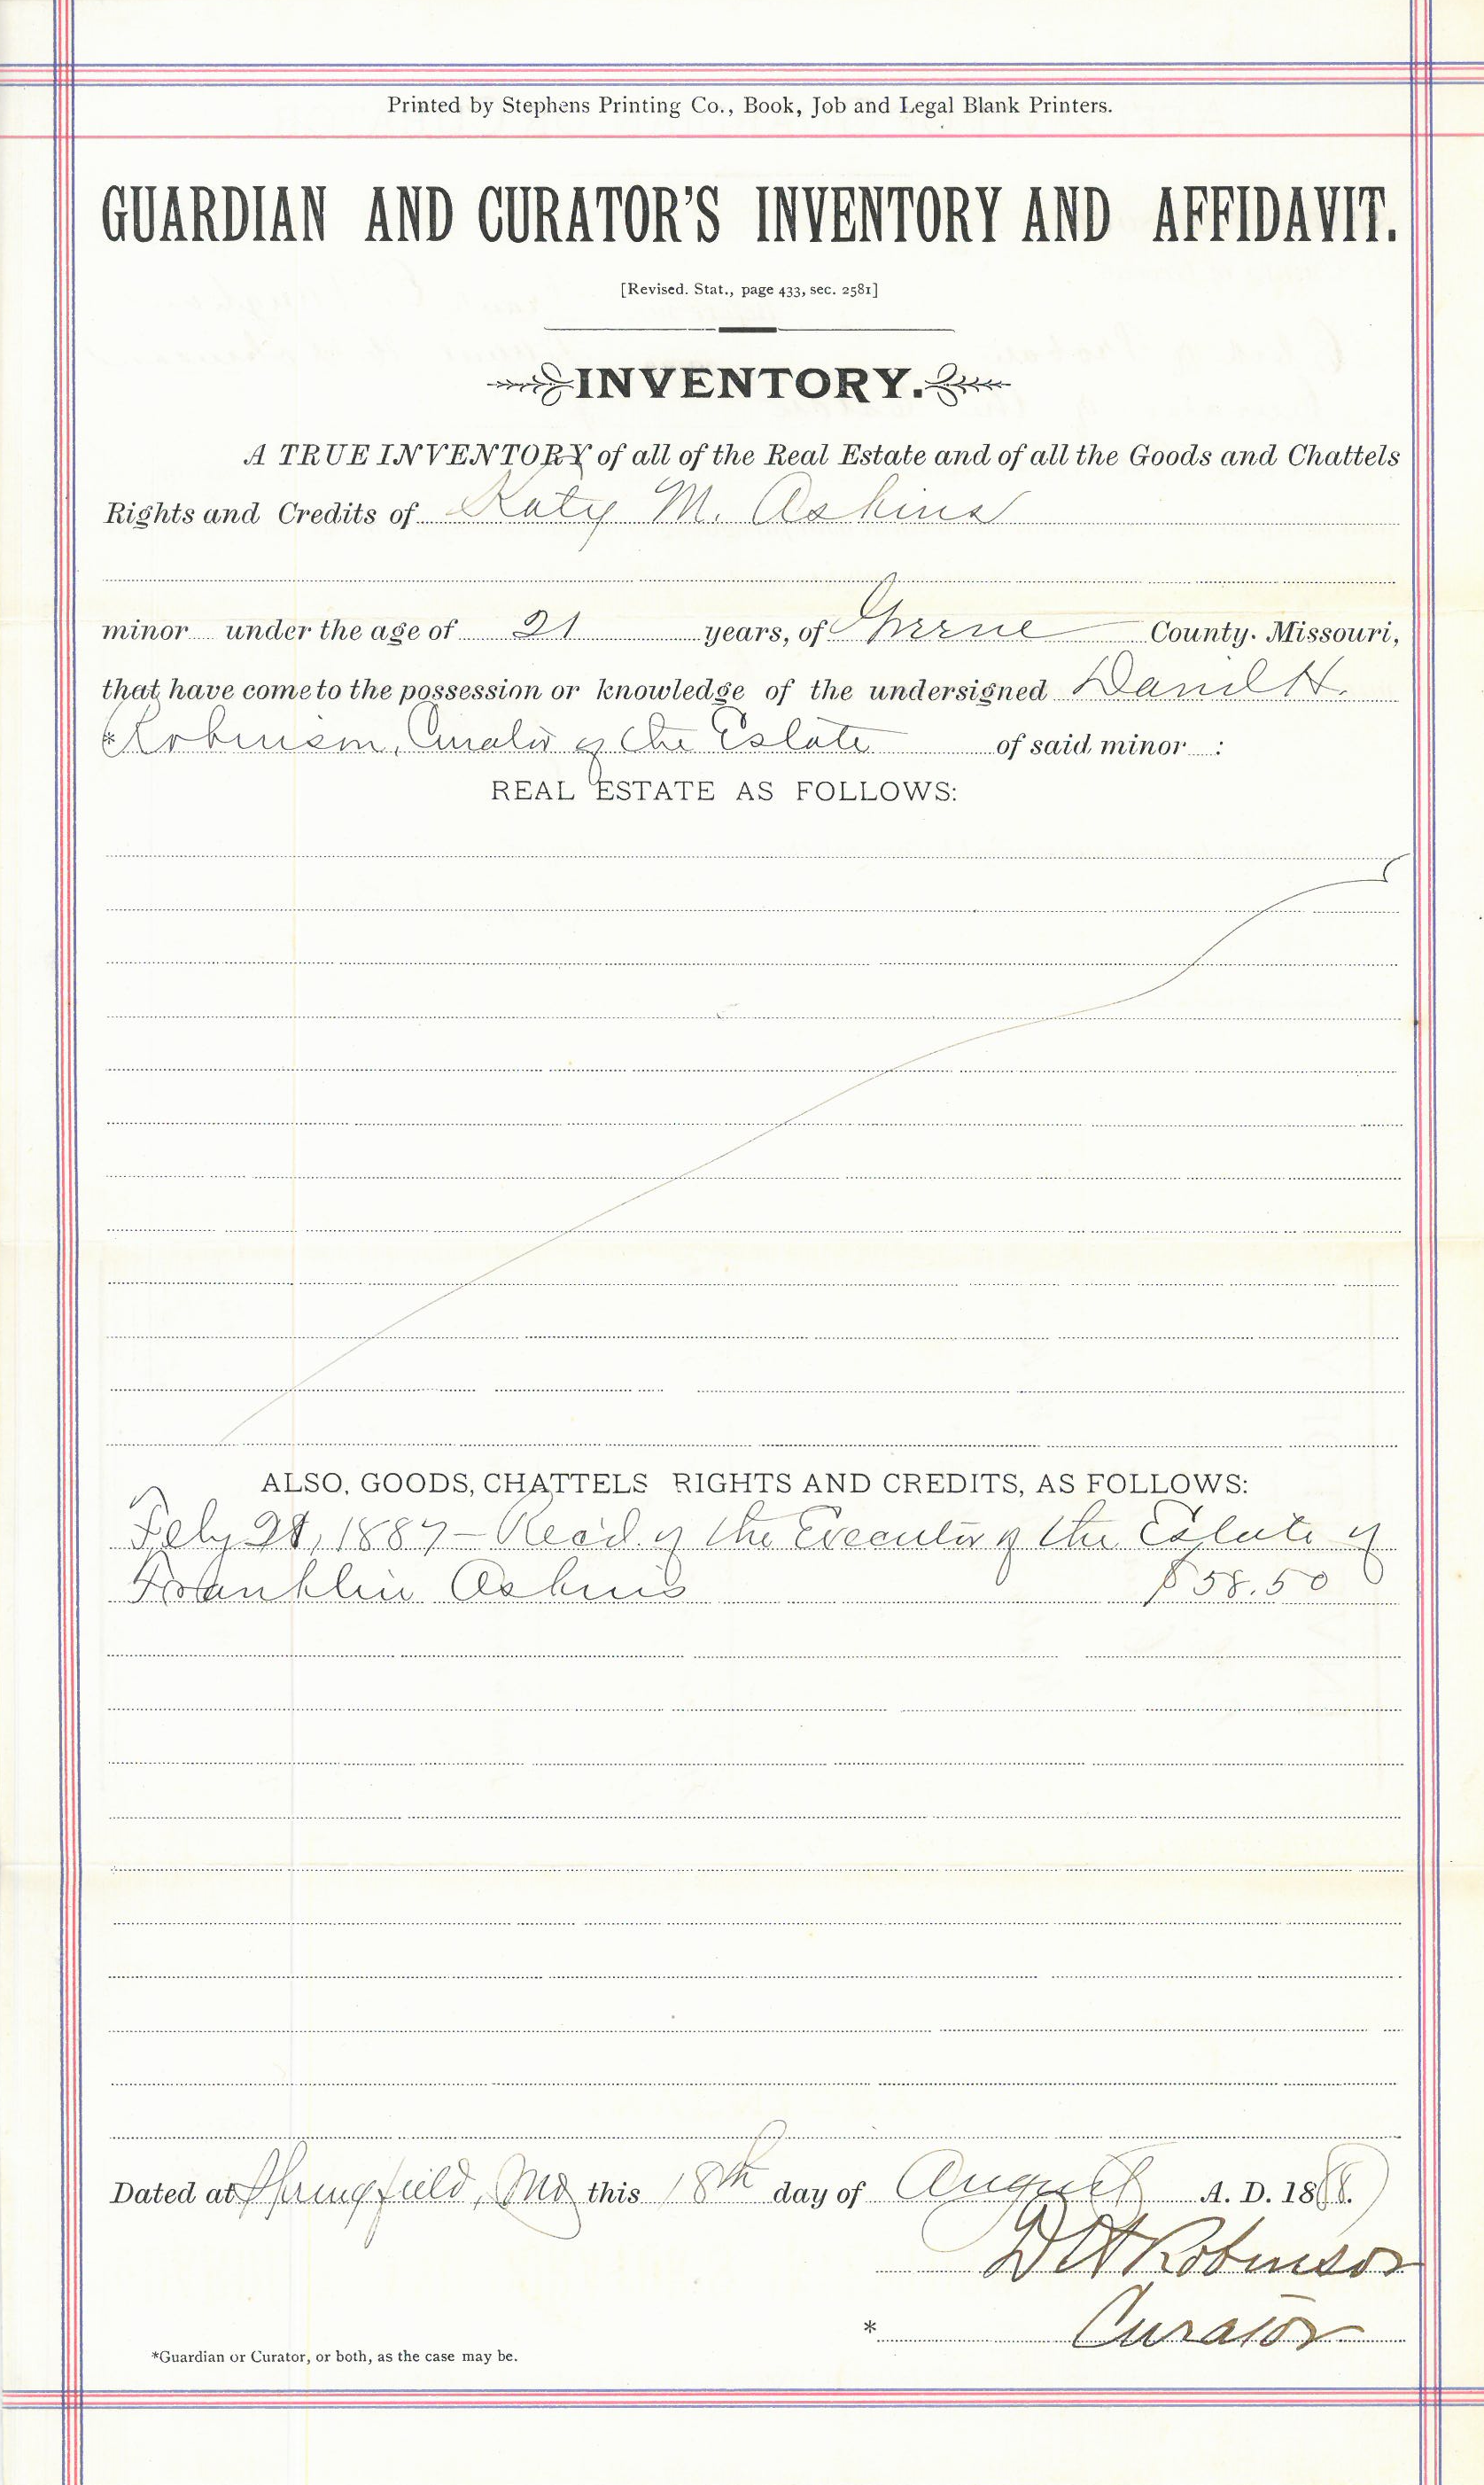 Printed by Stephens Printing Co., Book, Job and Legal Blank Printers.
GUARDIAN AND CURATOR'S INVENTORY AND AFFIDAVIT.
[Revised. Stat., page 433, sec. 2581]
INVENTORY.
A TRUE INVENTORY of all of the Real Estate and of all the Goods and Chattels
Rights and Credits of Katy M. Askins
minor under the age of 21 years, of Greene County. Missouri,
that have come to the possession or knowledge of the undersigned Daniel H.
*Robinson, Curator of the Estate of said minor :
REAL ESTATE AS FOLLOWS:
ALSO, GOODS, CHATTELS RIGHTS AND CREDITS, AS FOLLOWS:
Feby 28, 1887 - Rec'd. of the Executor of the Estate of
Franklin Askins $58.50
Dated at Springfield, Mo this 18th day of August A. D. 1888.
D H Robinson
* Curator
*Guardian or Curator, or both, as the case may be.